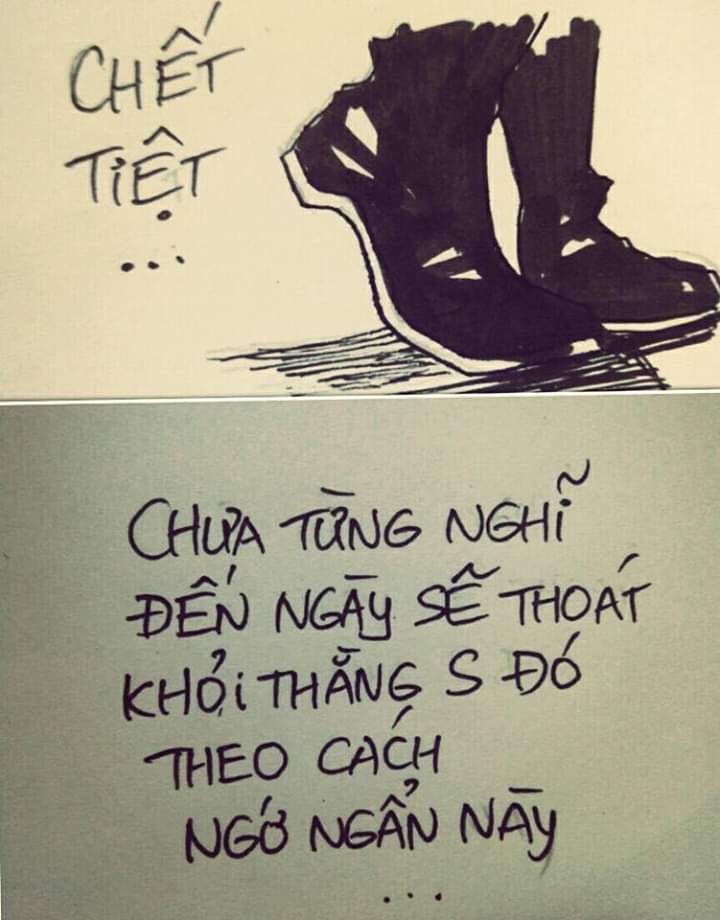 CHẾT
TIỆT
...
CHƯA TỪNG NGHĨ
ĐẾN NGÀY SẼ THOÁT
KHỎI THẰNG S ĐÓ
THEO CÁCH
NGỚ NGẨN NÀY
...